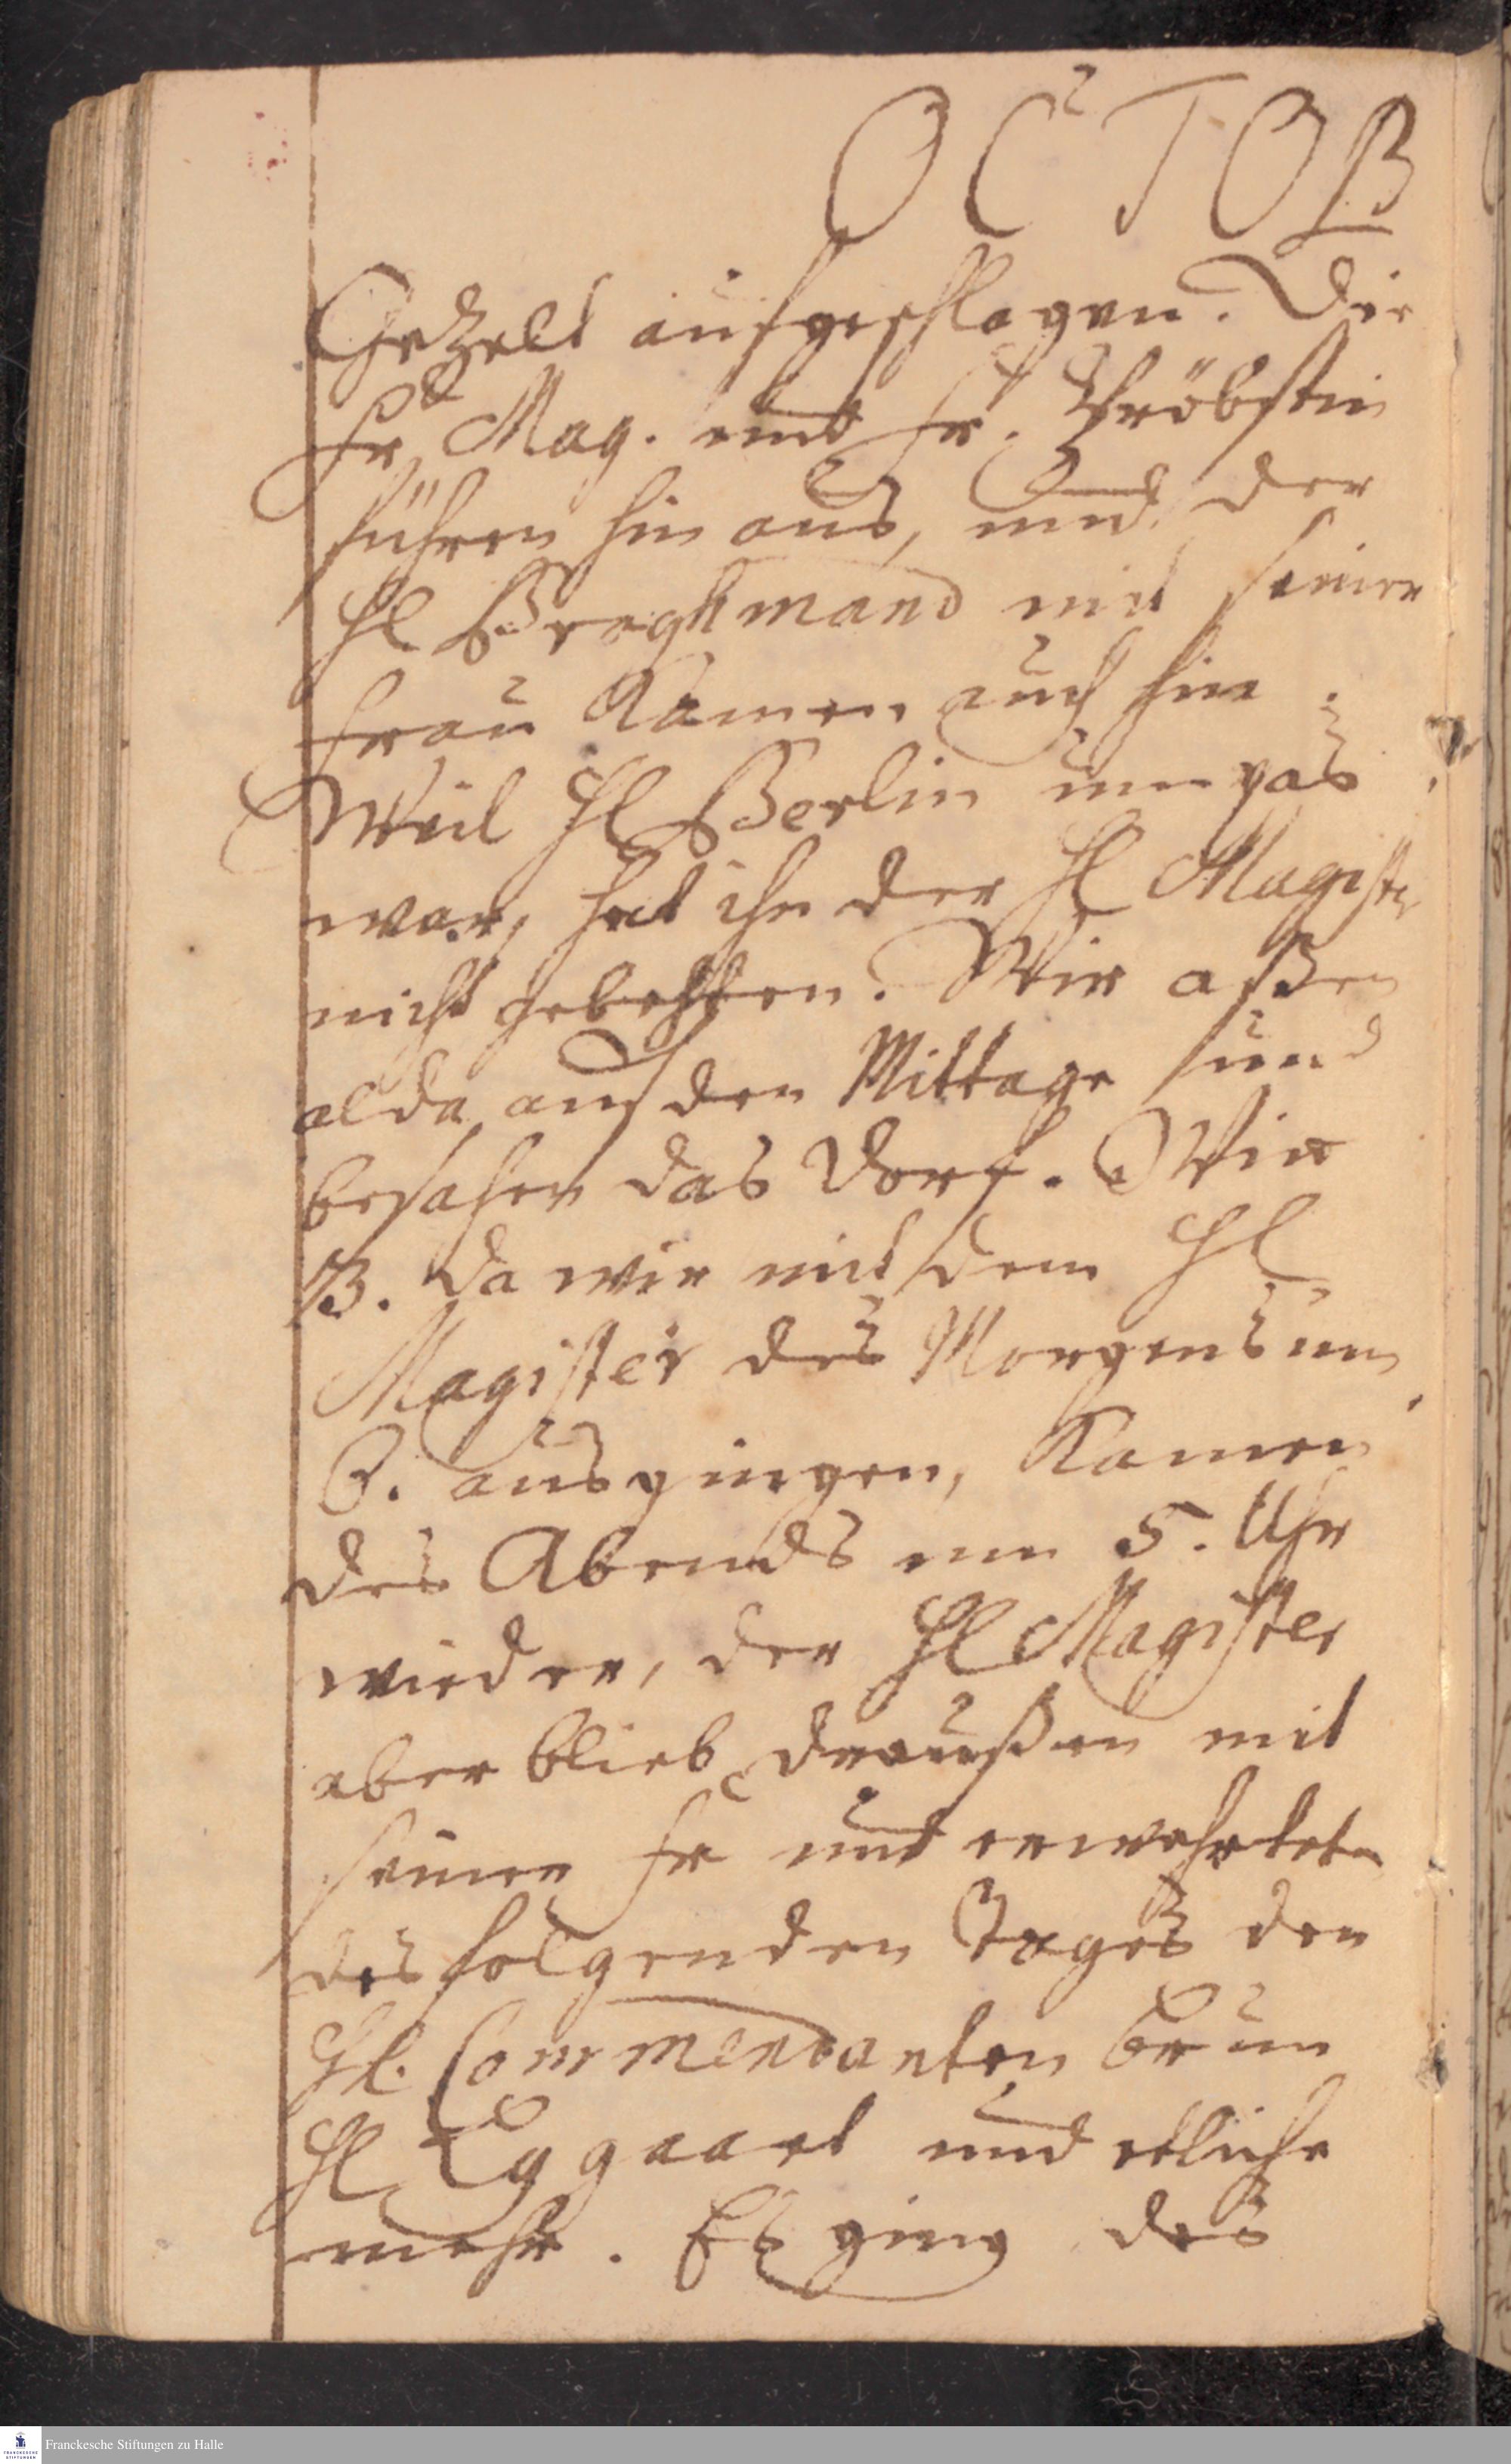 OCTOB
Gezelt aufgeschlagen. Die
Fr Mag. und Fr. Pröbstin
führen hin aus, und der
Hl Berghmand mit seiner
Frau Kamen auch hin.
Weil Hl Berlin unpas
war, hat ihn der Hl Magister
nicht gebehten. Wir aßen
alda auf den Mittage und
besahen das Dorf. Wir
B. da wir mit dem Hl
Magister des Morgens um
8. ausgingen, Kamen
des Abends um 5. Uhr
wieder, der Hl Magister
aber blieb draußen mit
seiner Fr und erwahrtete
des folgenden Tages den
Hl. Commendanten Brun
Hl Eggaart und etliche
mehr. Es ging des
Franckesche Stiftungen zu Halle